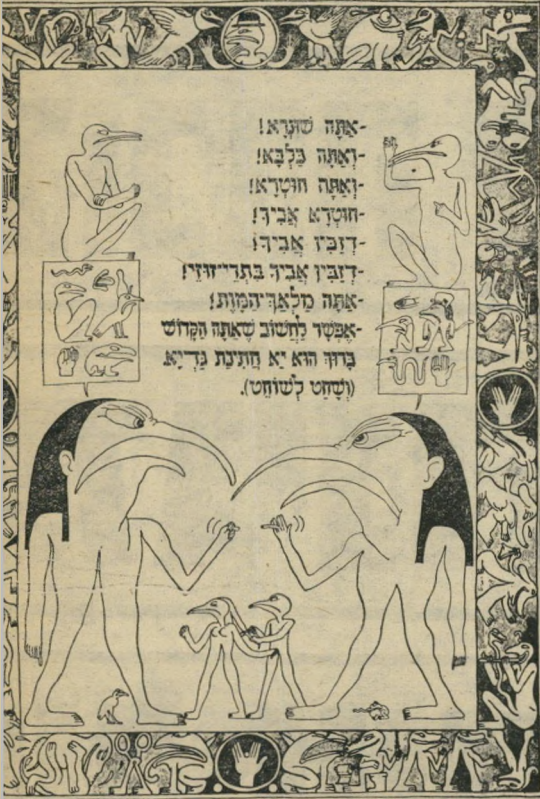 -אַתָּה שׁוּנְרָא!
-וְאַתָּה כַּלְבָּא!
-וְאַתָּה חוּטְרָא!
-חוּטְרָא אָבִיךָ!
-דְזַבִּין אָבִיךָ!
-דְזַבִּין אָבִיךָ בִּתְרֵי־זוּזֵי!
-אַתָּה מַלְאַךְ־הַמָּוֶת!
-אֶפְשָׁר לַחְשׁוֹב שֶׁאַתָּה הַקָּדוֹשׁ
בָּרוּךְ הוּא יָא חֲתִיכַת גַּדְיָא.
(וְשָׁחַט לְשׁוֹחֵט).